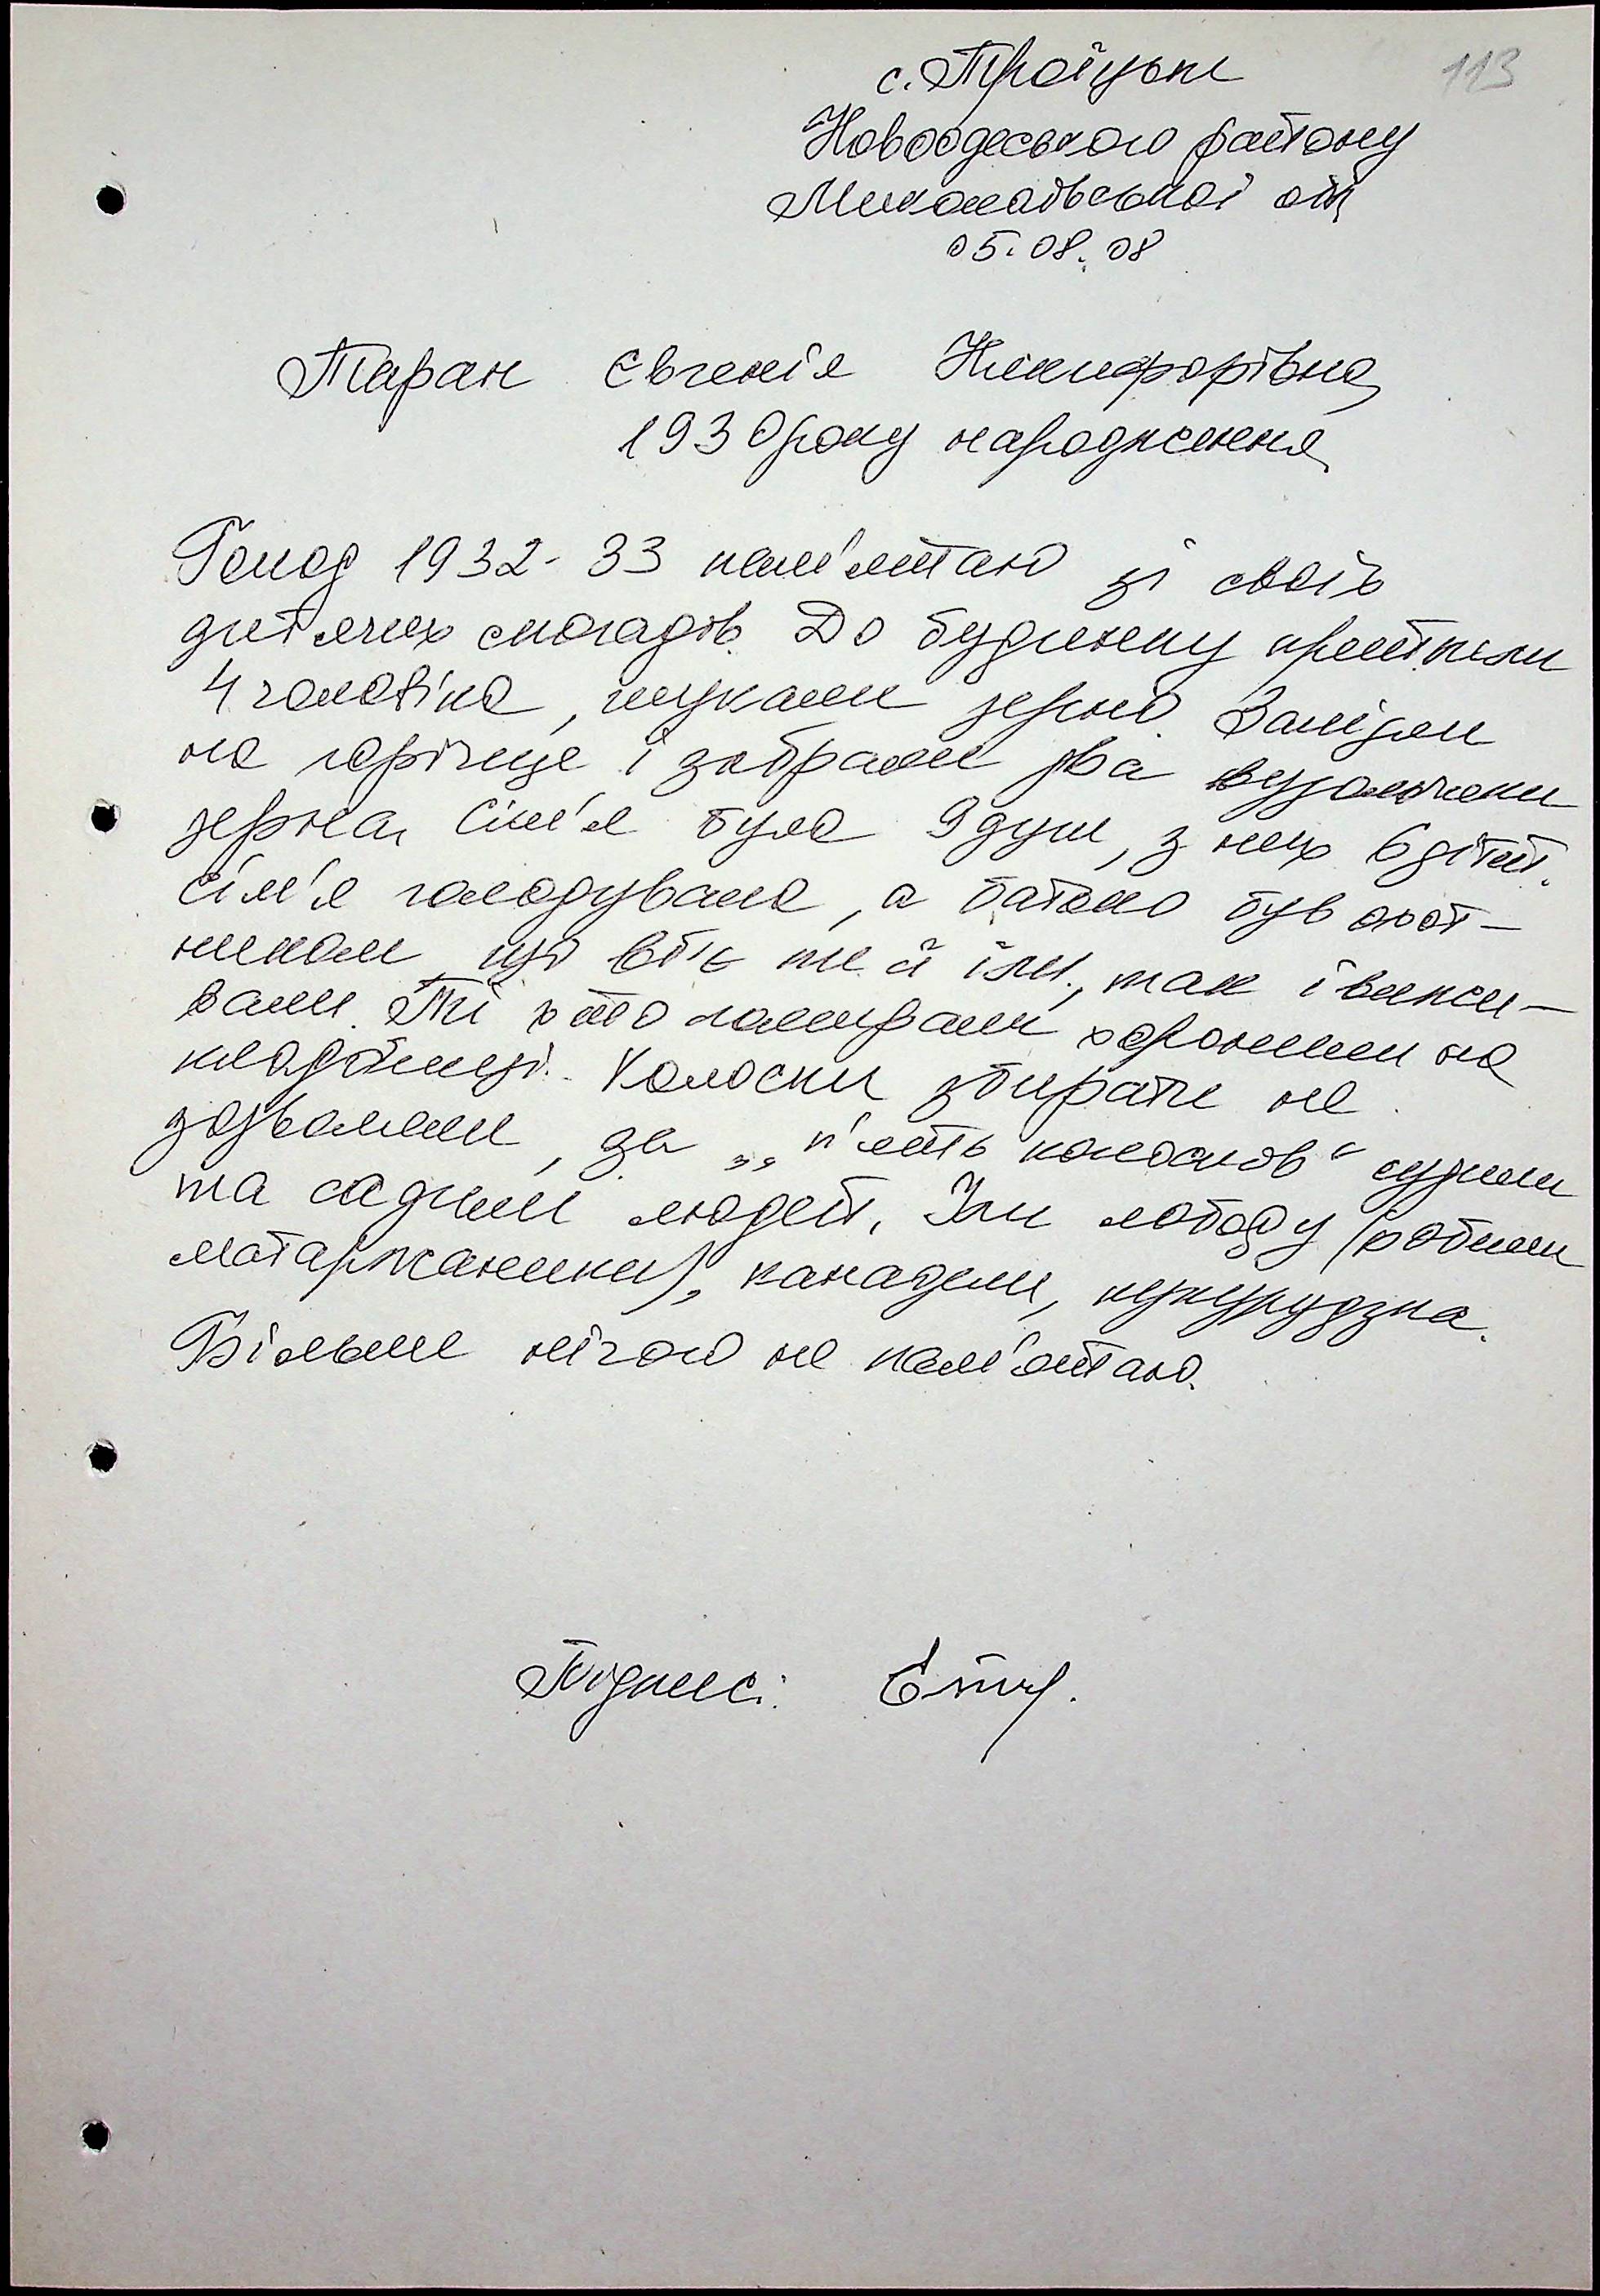 113
с. Троїцьке
Новоодеського району
Миколаївської обл
05.08.08
Таран Євгенія Никифорівна
1930 року народження
Голод 1932-33 пам'ятаю зі своїх
дитячих спогадів. До будинку прийшли
4 чоловіка, шукали зерно. Залізли
на горіще і забрали два вузлочки
зерна. Сім'я була 9 душ, з них 6 дітей.
Сім'я голодувала, а батько був охот-
ником, що вб'є те й їли, так і вижи-
вали. Ті хто помирали хоронили на
кладбищі. Колоски збирати не
дозволяли, за „п'ять колосків" судили
та садили людей. Їли лободу (робили
маторжаники), качадели, кукурудзка.
Більше нічого не пам'ятаю.
Підписі: